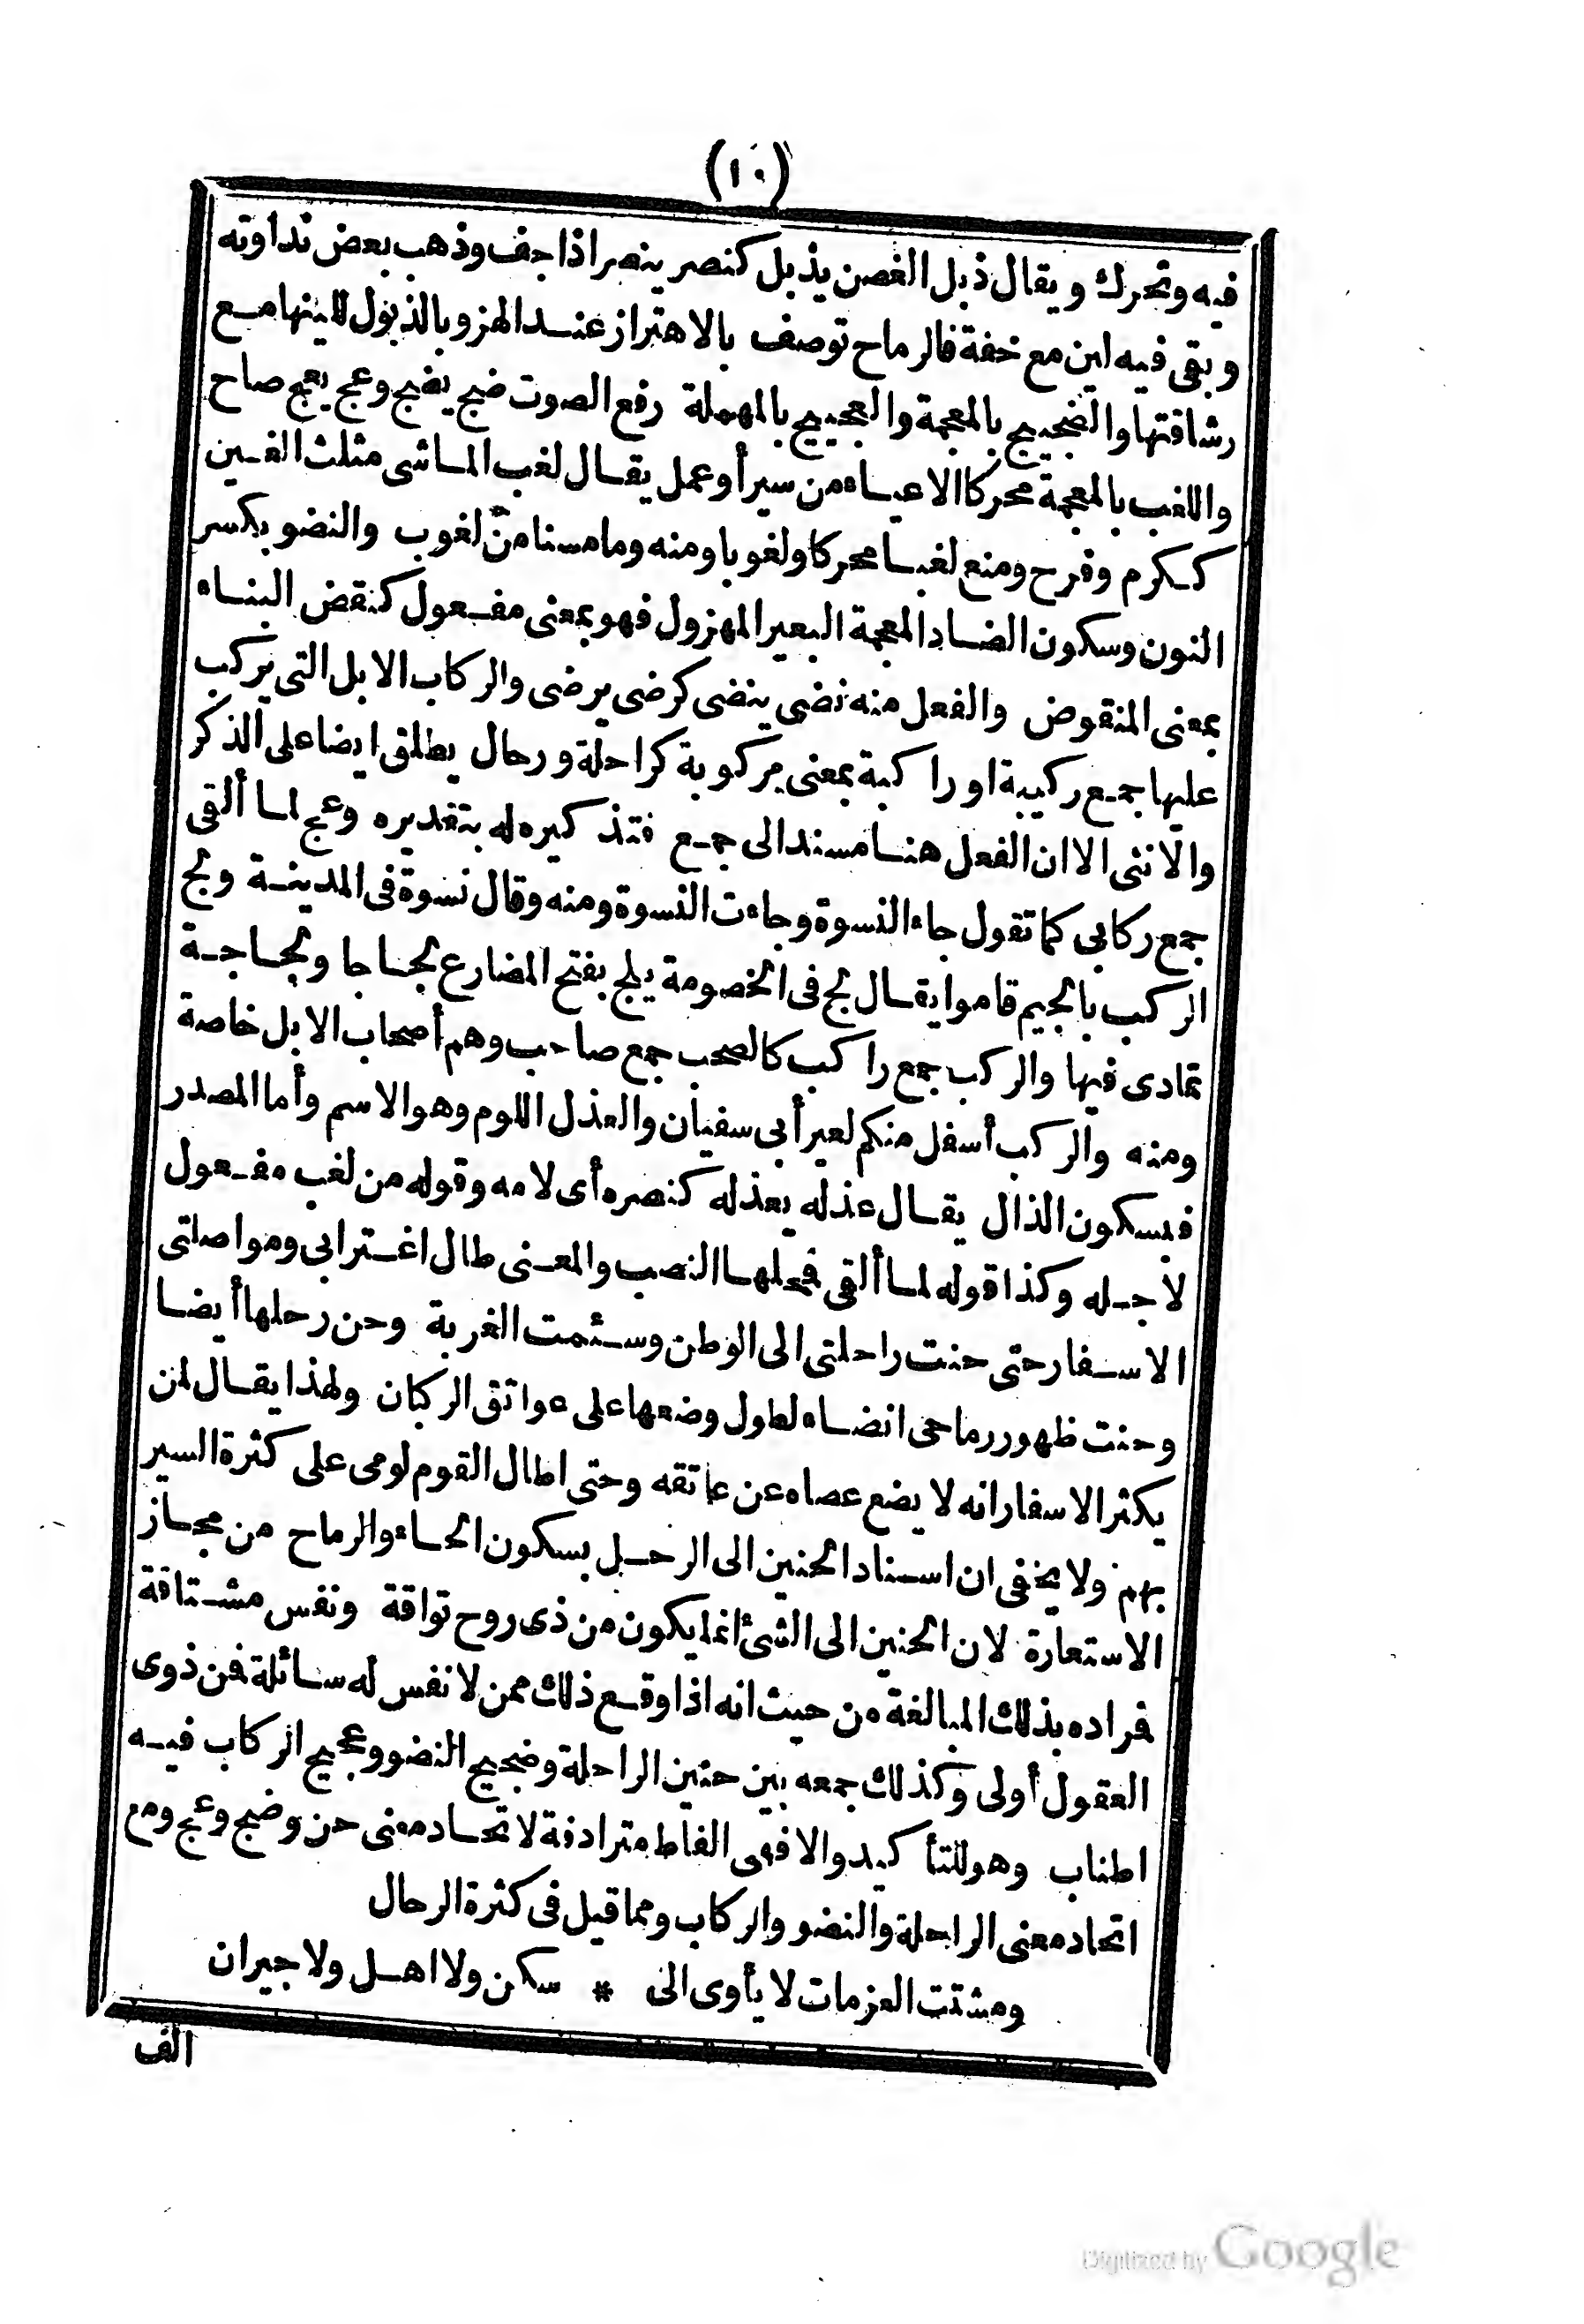 (١٠)
فيه وتحرك ويقال ذبل الغصن يذبل كنصر ينصر اذا جف وذهب بعض نداوته
وبقى فيه لين مع خفة فالرماح توصف بالاهتزاز عند الهز وبالذبول للينها مع
رشاقتها والضجيج بالمعجمة والعجيج بالمهملة رفع الصوت ضج يضج وعج يعج صاح
واللغب بالمعجمة محركا الاعياء من سير أو عمل يقال لغب الماشى مثلث الغين
ككرم وفرح ومنع لغبا محركا ولغوبا ومنه وما مسنا من لغوب والنضو بكسر
النون وسكون الضاد المعجمة البعير المهزول فهو بمعنى مفعول كنقض البناء
بمعنى المنقوض والفعل منه نضى ينضى كرضى يرضى والركاب الابل التى يركب
عليها جمع ركيبة او راكبة بمعنى مركوبة كراحلة ورحال يطلق ايضا على الذكر
والانثى الا ان الفعل هنا مسند الى جمع فتذكيره له بتقديره وعج لما ألقى
جمع ركابى كما تقول جاء النسوة وجاءت النسوة ومنه وقال نسوة فى المدينة ولج
الركب بالجيم قاموا يقال لج فى الخصومة يلج بفتح المضارع لجاجا ولجاجة
تمادى فيها والركب جمع راكب كالصحب جمع صاحب وهم أصحاب الابل خاصة
ومنه والركب أسفل منكم لعير أبى سفيان والعذل اللوم وهو الاسم وأما المصدر
فبسكون الذال يقال عذله يعذله كنصره أى لامه وقوله من لغب مفعول
لاجله وكذا قوله لما ألقى فمحلها النصب والمعنى طال اغترابى ومواصلتى
الاسفار حتى حنت راحلتى الى الوطن وسئمت الغربة وحن رحلها أيضا
وحنت ظهور رماحى انضاء لطول وضعها على عواتق الركبان ولهذا يقال لمن
يكثر الاسفار انه لا يضع عصاه عن عاتقه وحتى اطال القوم لومى على كثرة السير
بهم ولا يخفى ان اسناد الحنين الى الرحل بسكون الحاء والرماح من مجاز
الاستعارة لان الحنين الى الشئ انما يكون من ذى روح تواقة ونفس مشتاقة
فراده بذلك المبالغة من حيث انه اذا وقع ذلك ممن لا نفس له سائلة فن ذوى
العقول أولى وكذلك جمعه بين حنين الراحلة وضجيج النضو وعجيج الركاب فيه
اطناب وهو للتأكيد والا فهى الفاظ مترادفة لاتحاد معنى حن وضج وعج ومع
اتحاد معنى الراحلة والنضو والركاب ومما قيل فى كثرة الرحال
ومشتت العزمات لا يأوى الى * سكن ولا اهل ولا جيران
الف
Digitized by Google